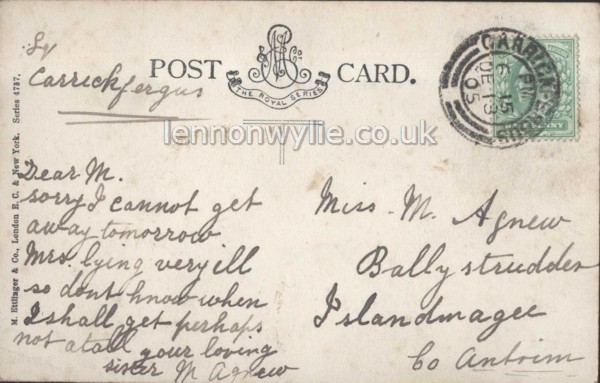 Carrickfergus
POST CARD.
THE ROYAL SERIES
CARRICKFERGUS
6 15 PM
DE 13
05
M. Ettlinger & Co., London E.C. & New York. Series 4737.
lennonwylie.co.uk
Dear M.
sorry I cannot get
away tomorrow
Mrs. lying very ill
so dont know when
I shall get perhaps
not at all your loving
sister M Agnew
Miss. M. Agnew
Ballystrudder
Islandmagee
Co Antrim